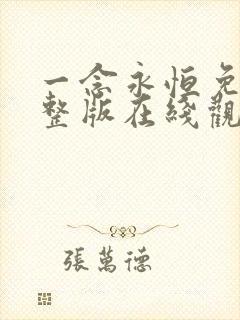 一念永恒免
整版在綫觀
張萬德